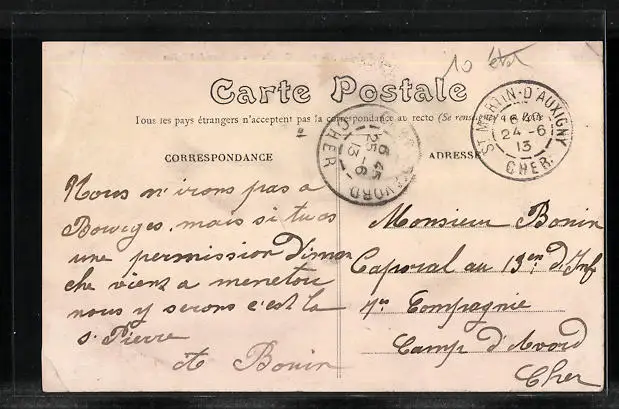 10 état
Carte Postale
Tous les pays étrangers n'acceptent pas la correspondance au recto (Se renseigner à la Poste)
CORRESPONDANCE
ADRESSE
ST MARTIN-D'AUXIGNY
16 40
24 -6
13
CHER
D'AVORD
6 45
25 -6
13
CHER
Nous n'irons pas a
Bourges, mais si tu as
une permission Diman
che viens a menetou
nous y serons c'est la
St Pierre
A Bonin
Monsieur Bonin
Caporal au 13em d'Inf
Compagnie
Camp d'Avord
Cher